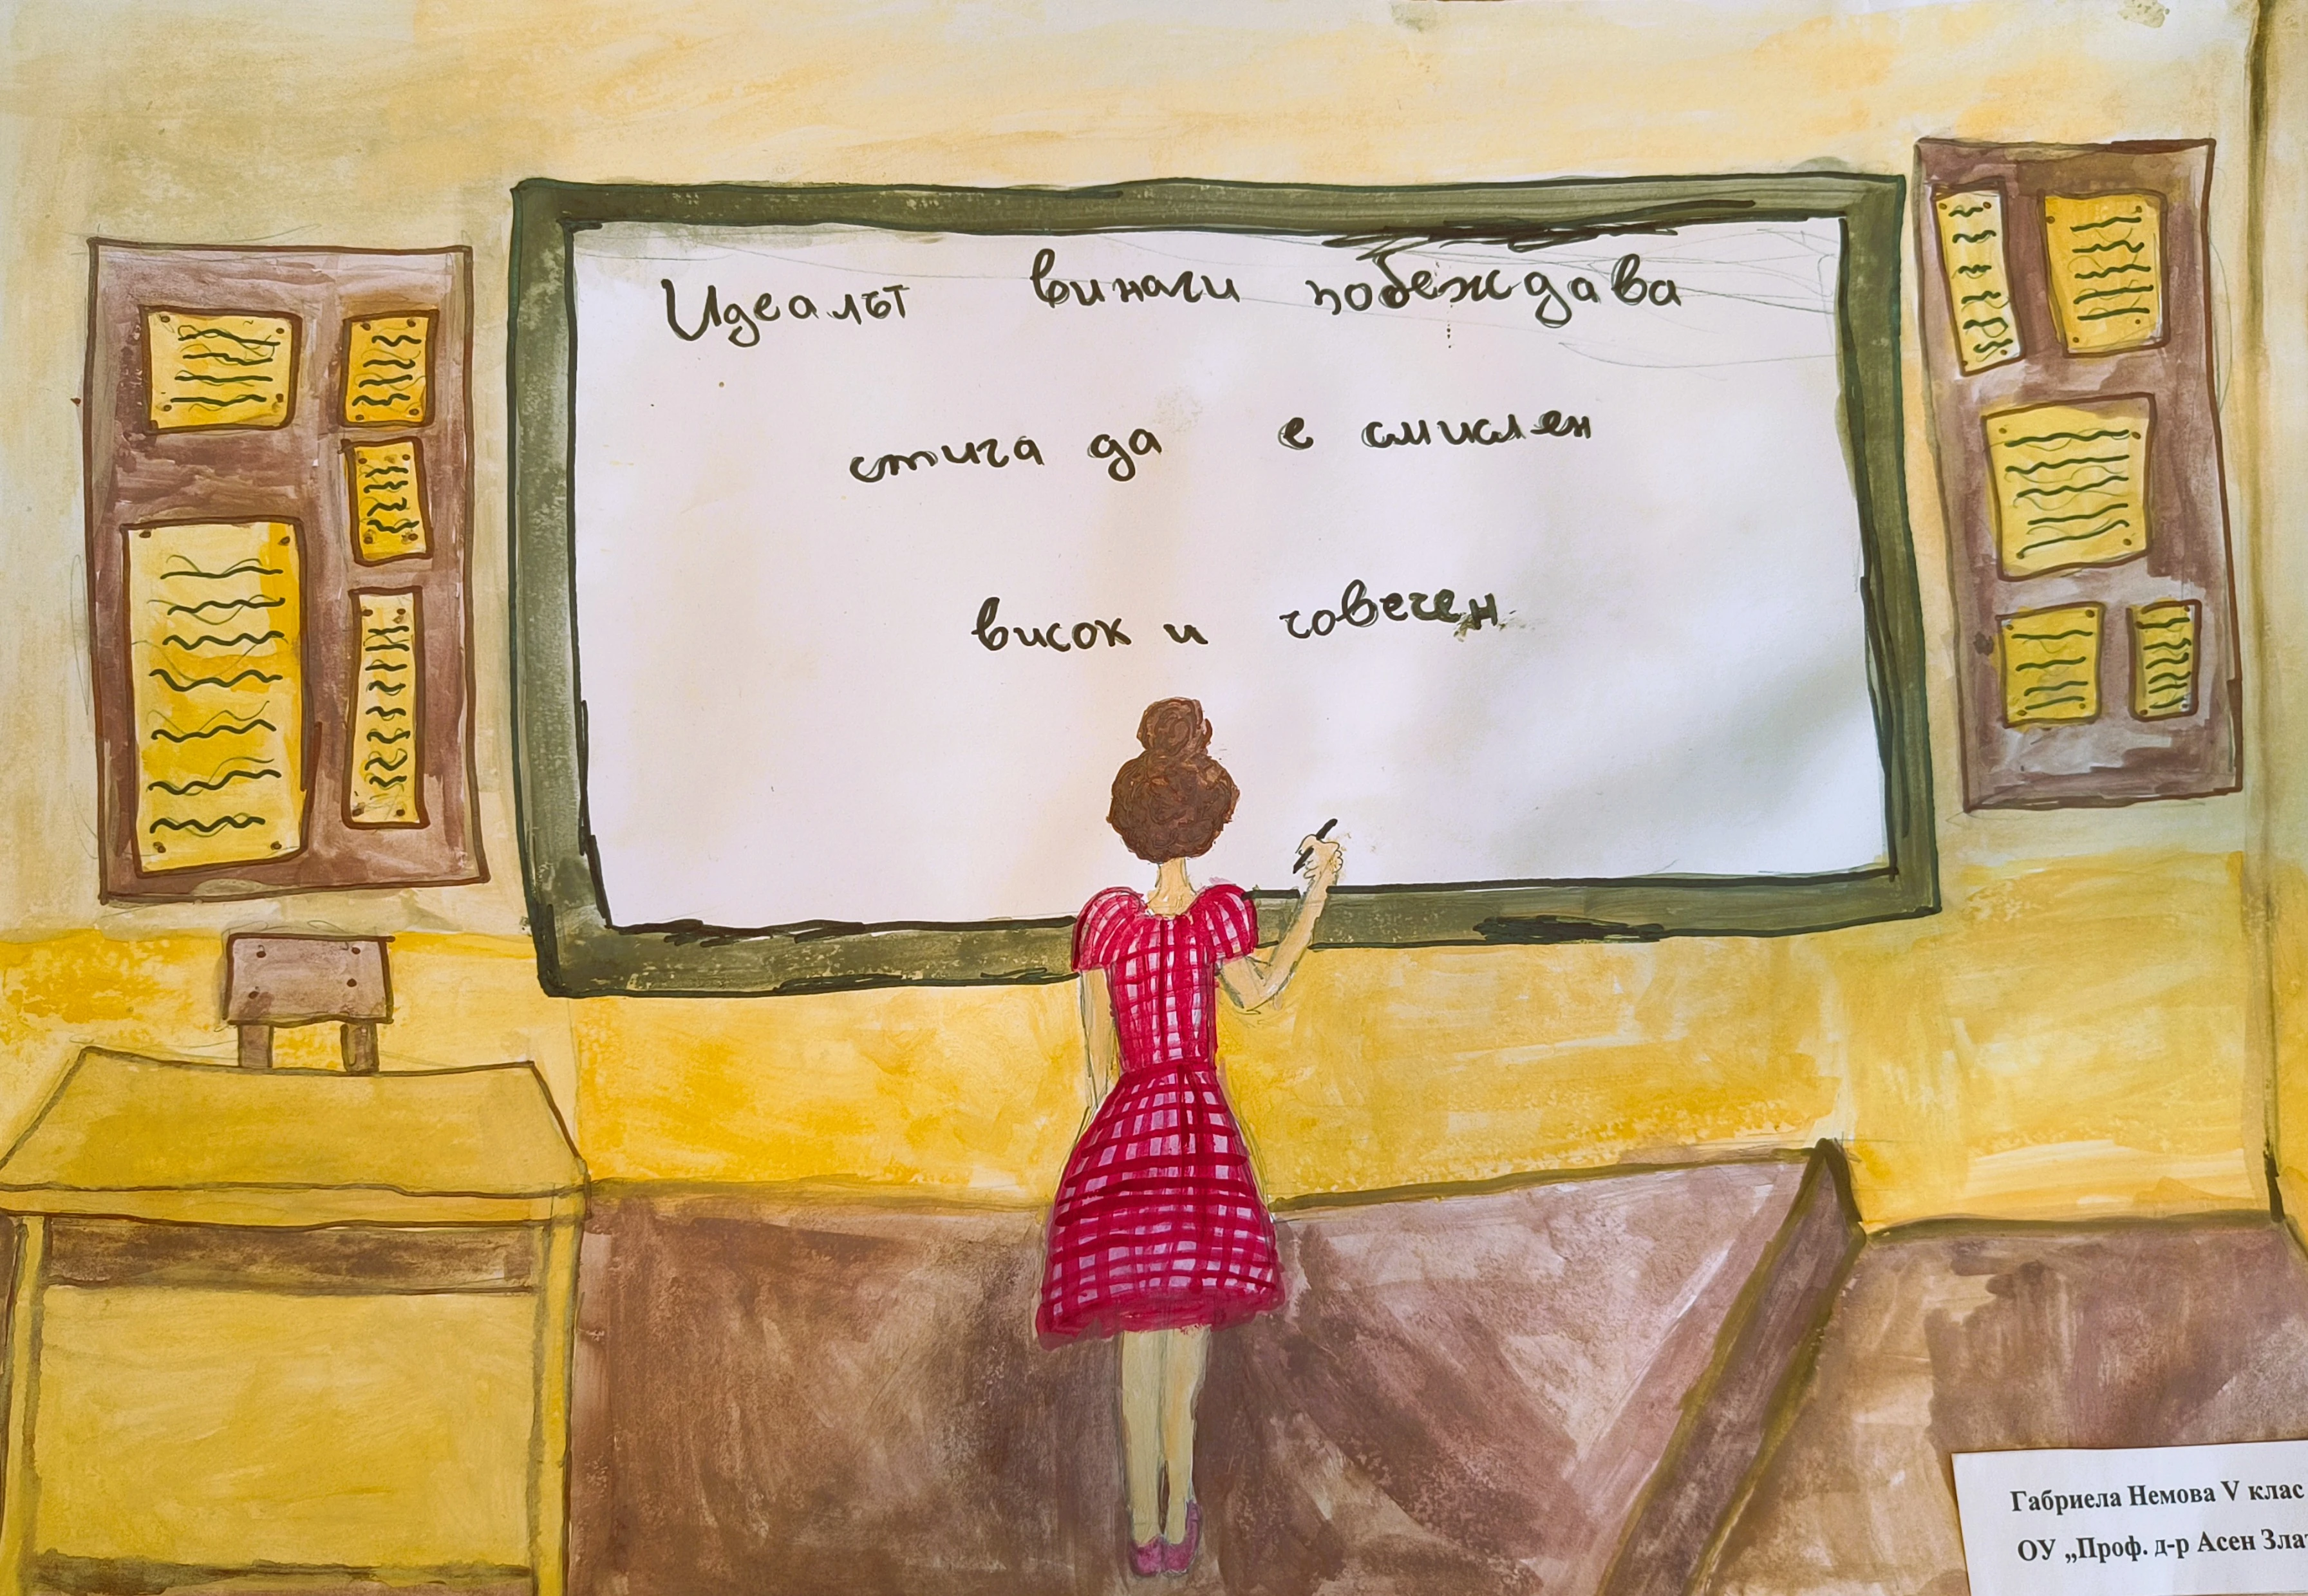 Идеалът винаги побеждава
стига да е смислен
висок и човечен
Габриела Немова V клас
ОУ „Проф. д-р Асен Злат